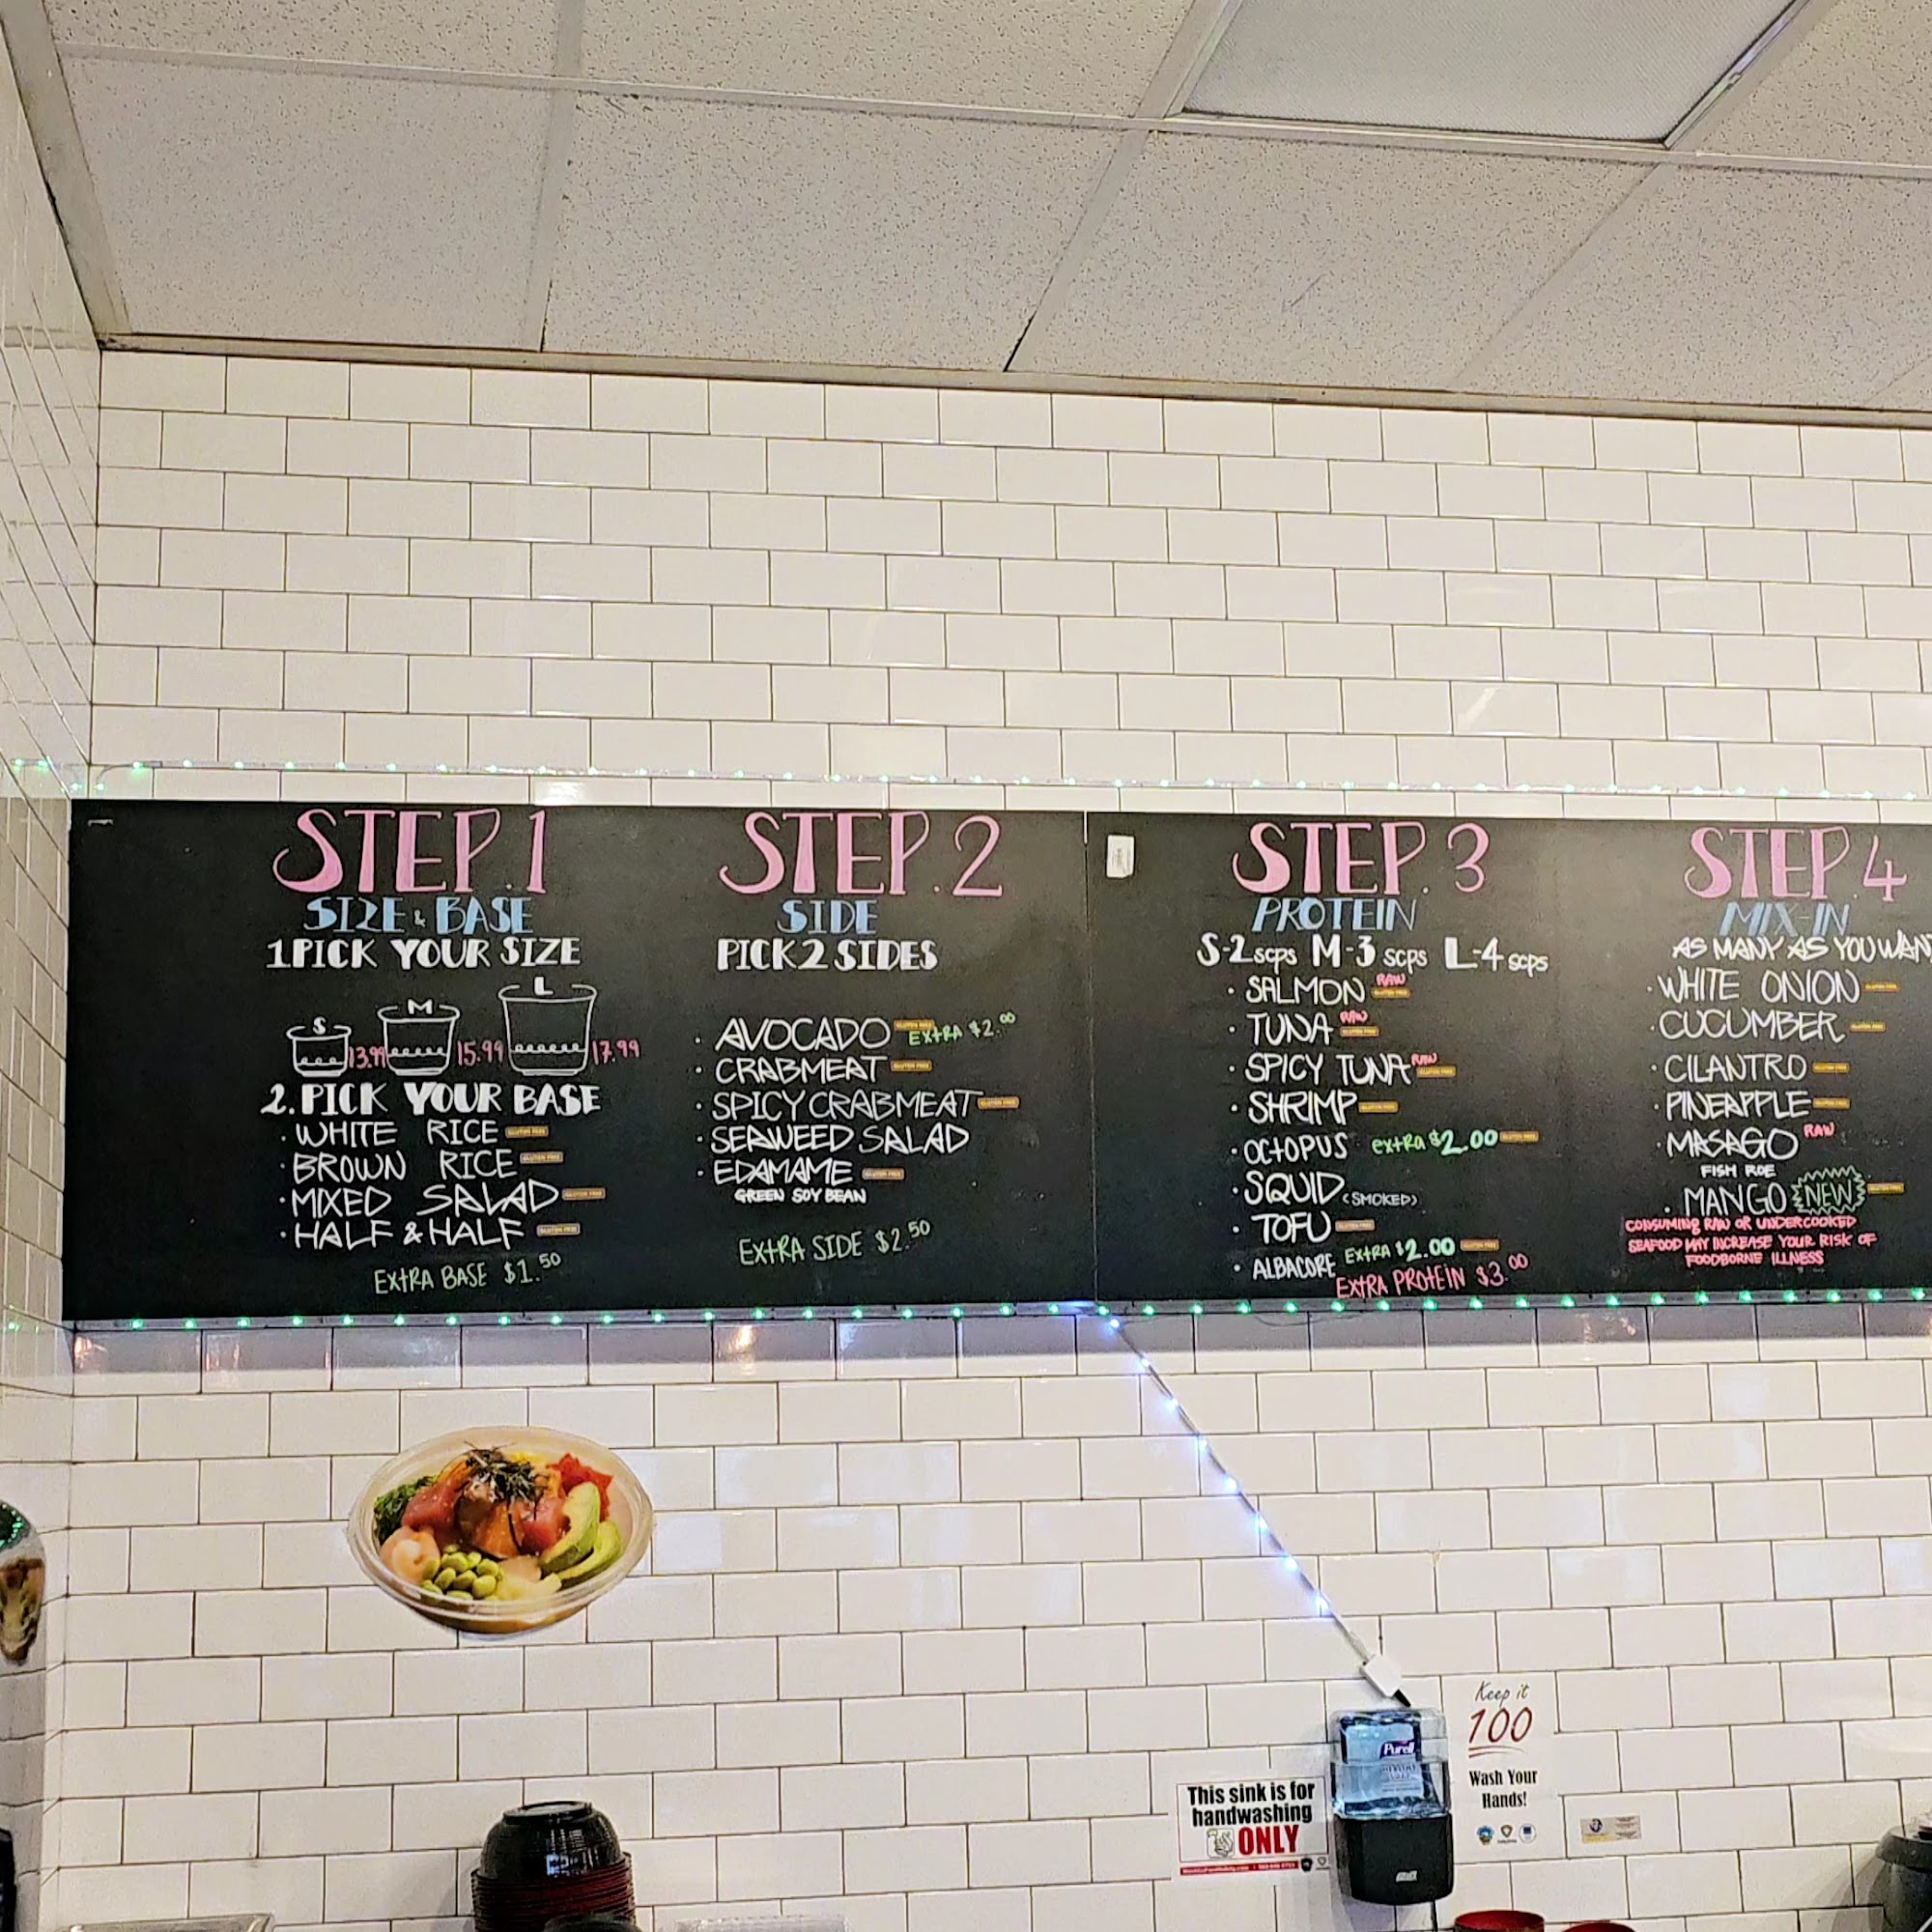 STEP.1
SIZE & BASE
1 PICK YOUR SIZE
S 13.99 M 15.99 L 17.99
2. PICK YOUR BASE
· WHITE RICE GLUTEN FREE
· BROWN RICE GLUTEN FREE
· MIXED SALAD GLUTEN FREE
· HALF & HALF GLUTEN FREE
EXTRA BASE $1.50
STEP.2
SIDE
PICK 2 SIDES
· AVOCADO GLUTEN FREE EXTRA $2.00
· CRABMEAT GLUTEN FREE
· SPICY CRABMEAT GLUTEN FREE
· SEAWEED SALAD
· EDAMAME GLUTEN FREE
GREEN SOY BEAN
EXTRA SIDE $2.50
STEP.3
PROTEIN
S-2 SCPS M-3 SCPS L-4 SCPS
· SALMON RAW GLUTEN FREE
· TUNA RAW GLUTEN FREE
· SPICY TUNA RAW GLUTEN FREE
· SHRIMP GLUTEN FREE
· OCTOPUS extra $2.00 GLUTEN FREE
· SQUID (SMOKED)
· TOFU GLUTEN FREE
· ALBACORE EXTRA $2.00 GLUTEN FREE
EXTRA PROTEIN $3.00
STEP.4
MIX-IN
AS MANY AS YOU WAN
· WHITE ONION GLUTEN FREE
· CUCUMBER GLUTEN FREE
· CILANTRO GLUTEN FREE
· PINEAPPLE GLUTEN FREE
· MASAGO RAW
FISH ROE
· MANGO NEW GLUTEN FREE
CONSUMING RAW OR UNDERCOOKED
SEAFOOD MAY INCREASE YOUR RISK OF
FOODBORNE ILLNESS
Keep it
100
Wash Your
Hands!
Purell
This sink is for
handwashing
ONLY